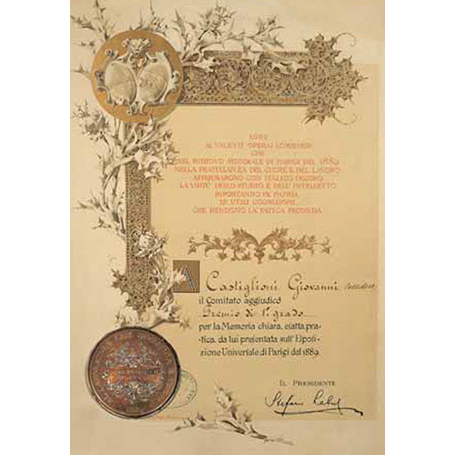 LODE
AI VALENTI OPERAI LOMBARDI
CHE
NEL RITROVO MONDIALE DI PARIGI DEL 1889
NELLA FRATELLANZA DEL CUORE E DEL LAVORO
AFFERMARONO CON ITALICO DECORO
LA VIRTÙ DELLO STUDIO E DELL'INTELLETTO
RIPORTANDO IN PATRIA
LE UTILI COGNIZIONI
CHE RENDONO LA FATICA FECONDA
A Castiglioni Giovanni
il Comitato aggiudicò
Premio di 1º grado
per la Memoria chiara, esatta, pra-
tica, da lui presentata sull'Esposi-
zione Universale di Parigi del 1889.
IL PRESIDENTE
Stefano